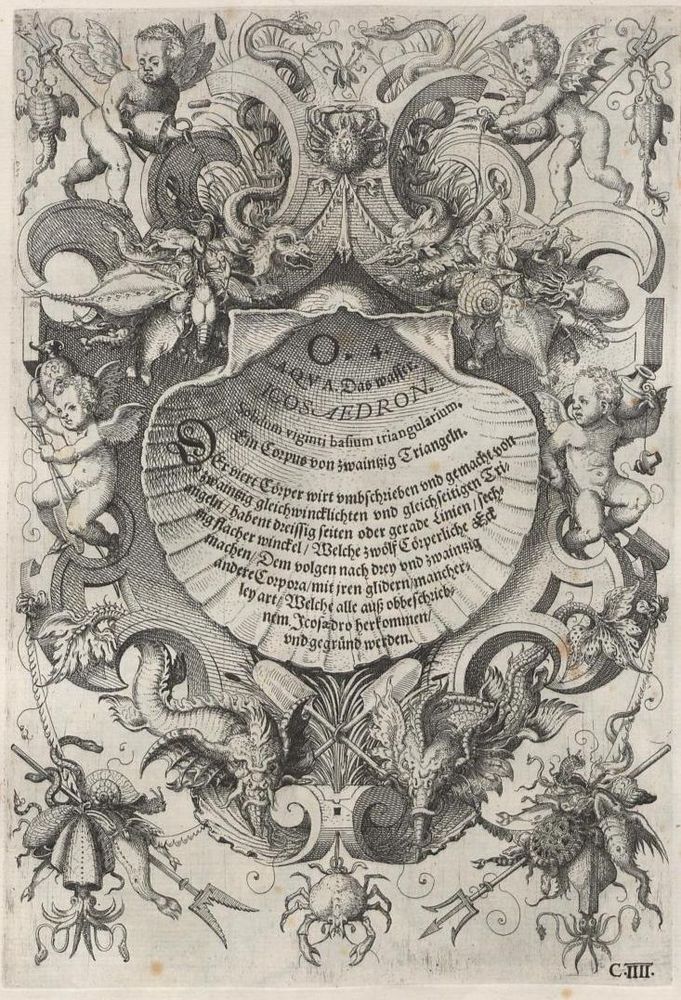 O. 4.
AQVA. Das wasser.
ICOSAEDRON.
Solidum viginti basium triangularium.
Ein Corpus von zwaintzig Triangeln.
DEr viert Cörper wirt vmbschrieben vnd gemacht von
zwaintzig gleichwincklichten vnd gleichseitigen Tri-
angeln/ habent dreissig seiten oder gerade Linien / sech-
tzig flacher winckel / Welche zwölf Cörperliche Eck
machen / Dem volgen nach drey vnd zwaintzig
andere Corpora / mit jren glidern / mancher-
ley art / Welche alle auß obbeschrieb-
nem Icosædro herkommen /
vnd gegründ werden.
C.IIII.